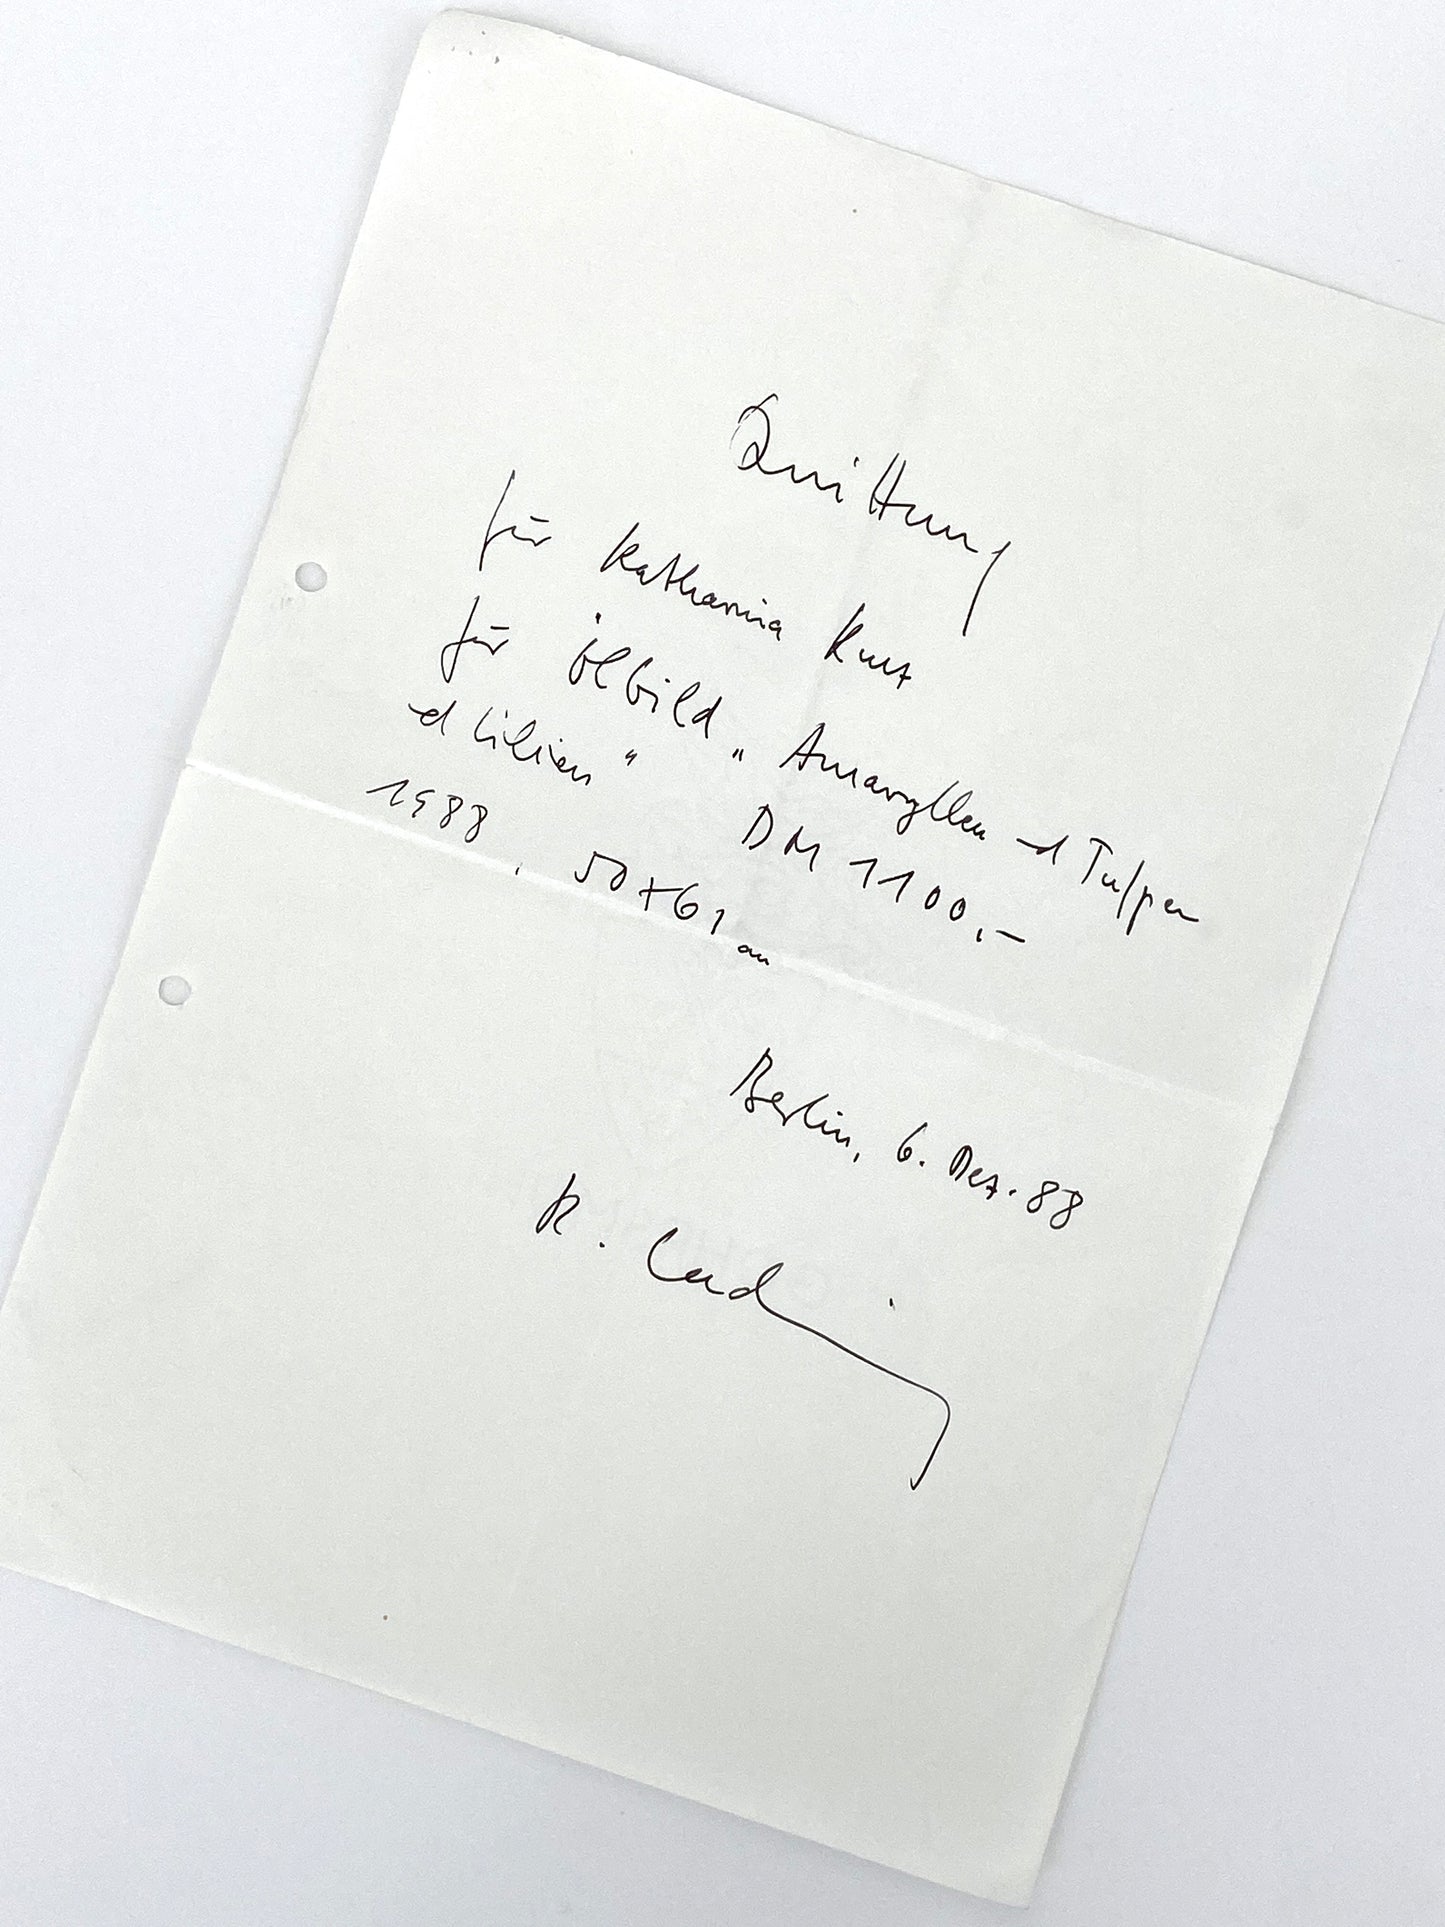 Quittung
für Katharina Kurz
für Ölbild „Amaryllen d Tulpen
d Lilien" DM 1100,-
1988, 50x61 cm
Berlin, 6. Dez. 88
K.